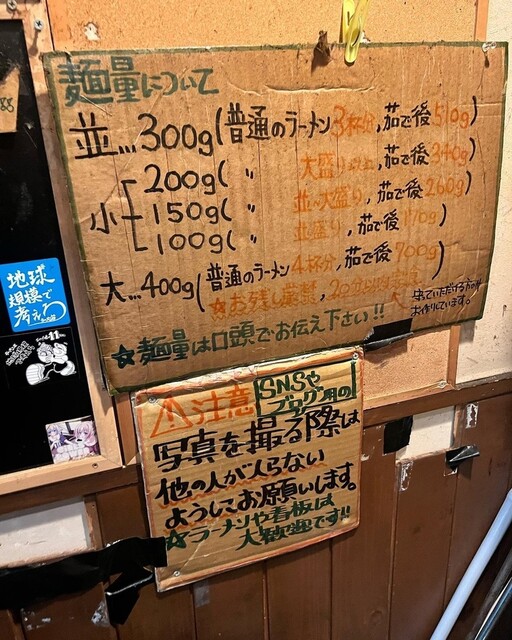 麺量について
並…300g(普通のラーメン3杯分,茹で後510g)
200g(〃 大盛り以上,茹で後340g)
小 150g(〃 並〜大盛り,茹で後260g)
100g(〃 並盛り,茹で後170g)
大…400g(普通のラーメン4杯分,茹で後700g)
☆お残し厳禁,20分
来ていただける方のみ
お作りしています。
☆麺量は口頭でお伝え下さい!!
⚠注意 SNSや
ブログ用の
写真を撮る際は
他の人が入らない
ようにお願いします。
☆ラーメンや看板は
大歓迎です!!
地球
規模で
考えろ